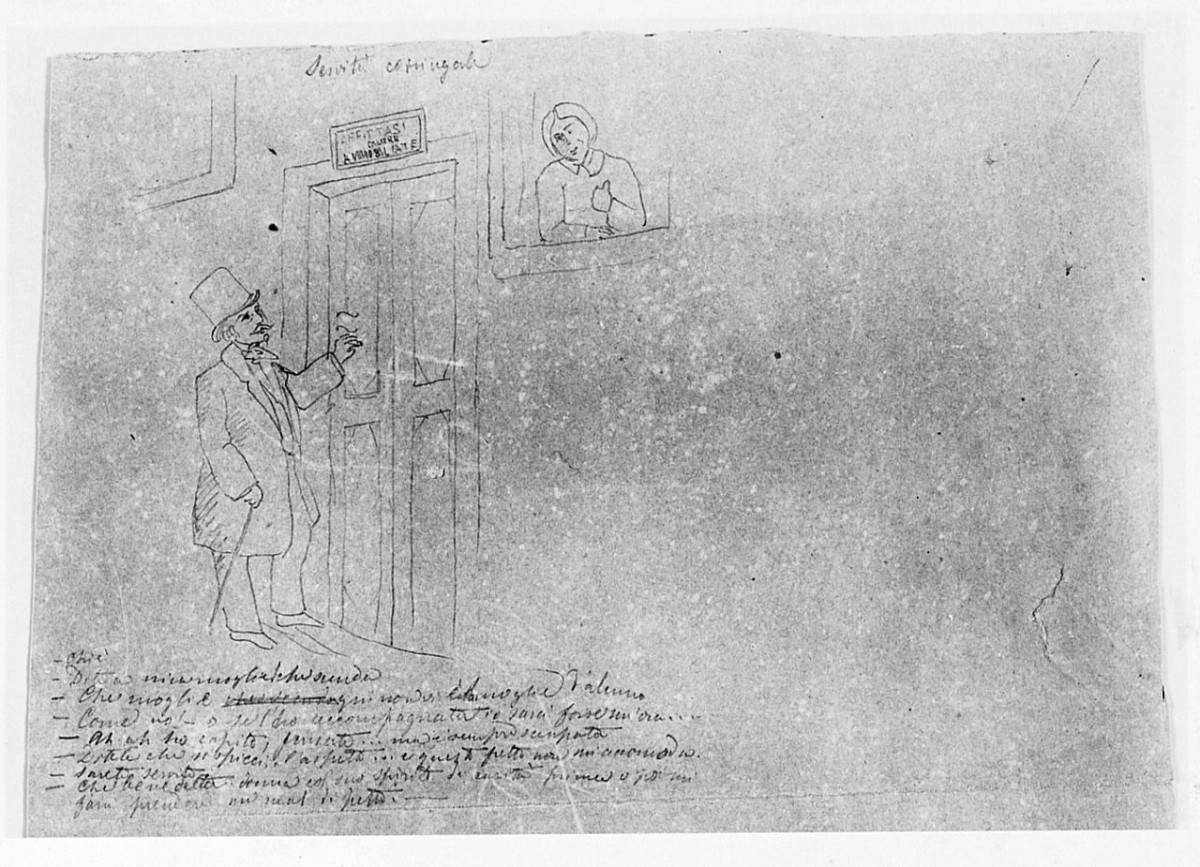 Servitù coniugale
AFFITTASI
CAMERE
AMMOBILIATE
– Chi è
– Dite a mia moglie che scenda
– Che moglie qui non vi è la moglie d'alcuno
– Come no! – o se l'ho accompagnata io sarà forse un'ora....
– Ah ah ho capito, scusate ... ma è sempre
– Ditele che si spicci, l'aspetto ... e questa non mi accomoda.
– Sarete servito
– Che benedetta donna col suo spirito di carità prima o poi mi
farà prendere un mal di petto. —